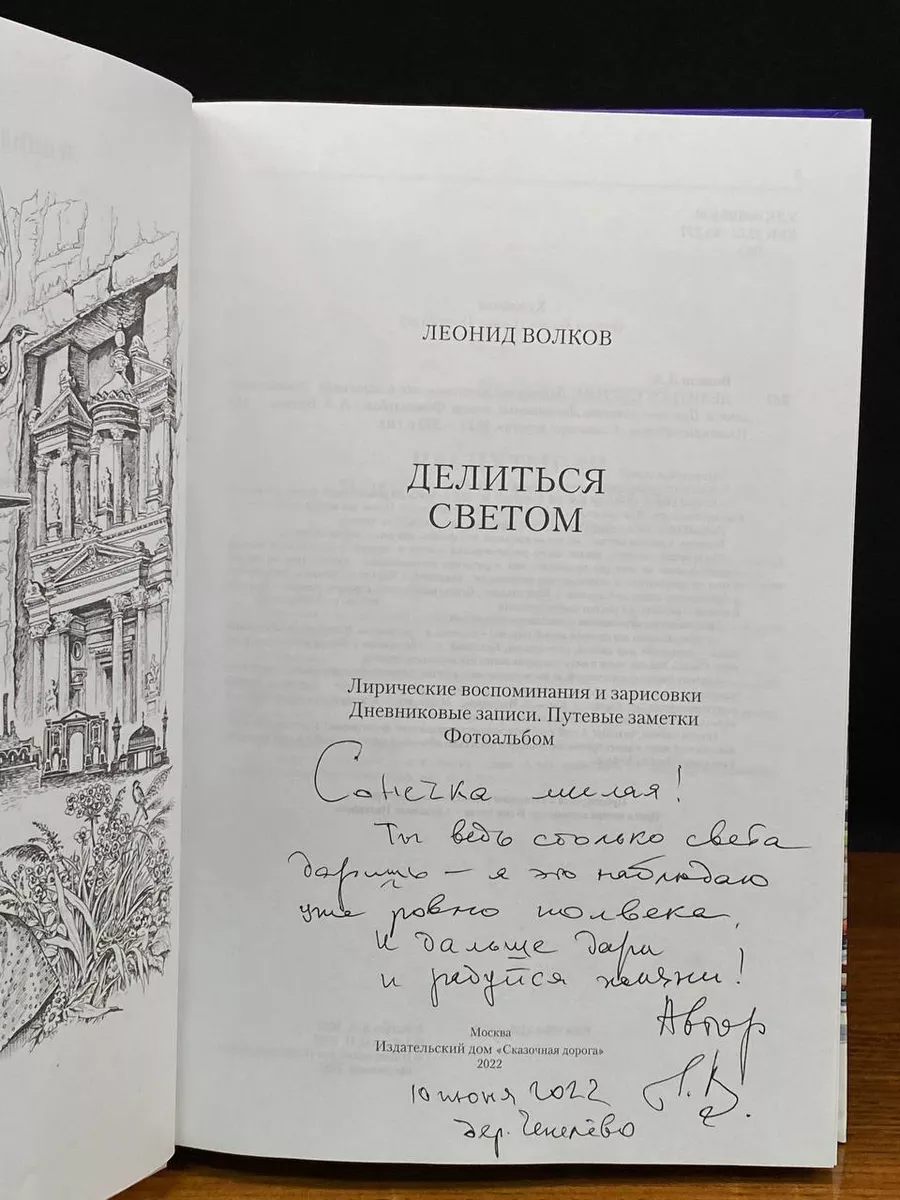 ЛЕОНИД ВОЛКОВ
ДЕЛИТЬСЯ
СВЕТОМ
Лирические воспоминания и зарисовки
Дневниковые записи. Путевые заметки
Фотоальбом
Сонечка милая!
Ты ведь столько света
даришь – я это наблюдаю
уже ровно полвека.
И дальше дари
и радуйся жизни!
Автор
Москва
Издательский дом «Сказочная дорога»
2022
10 июня 2022
дер.